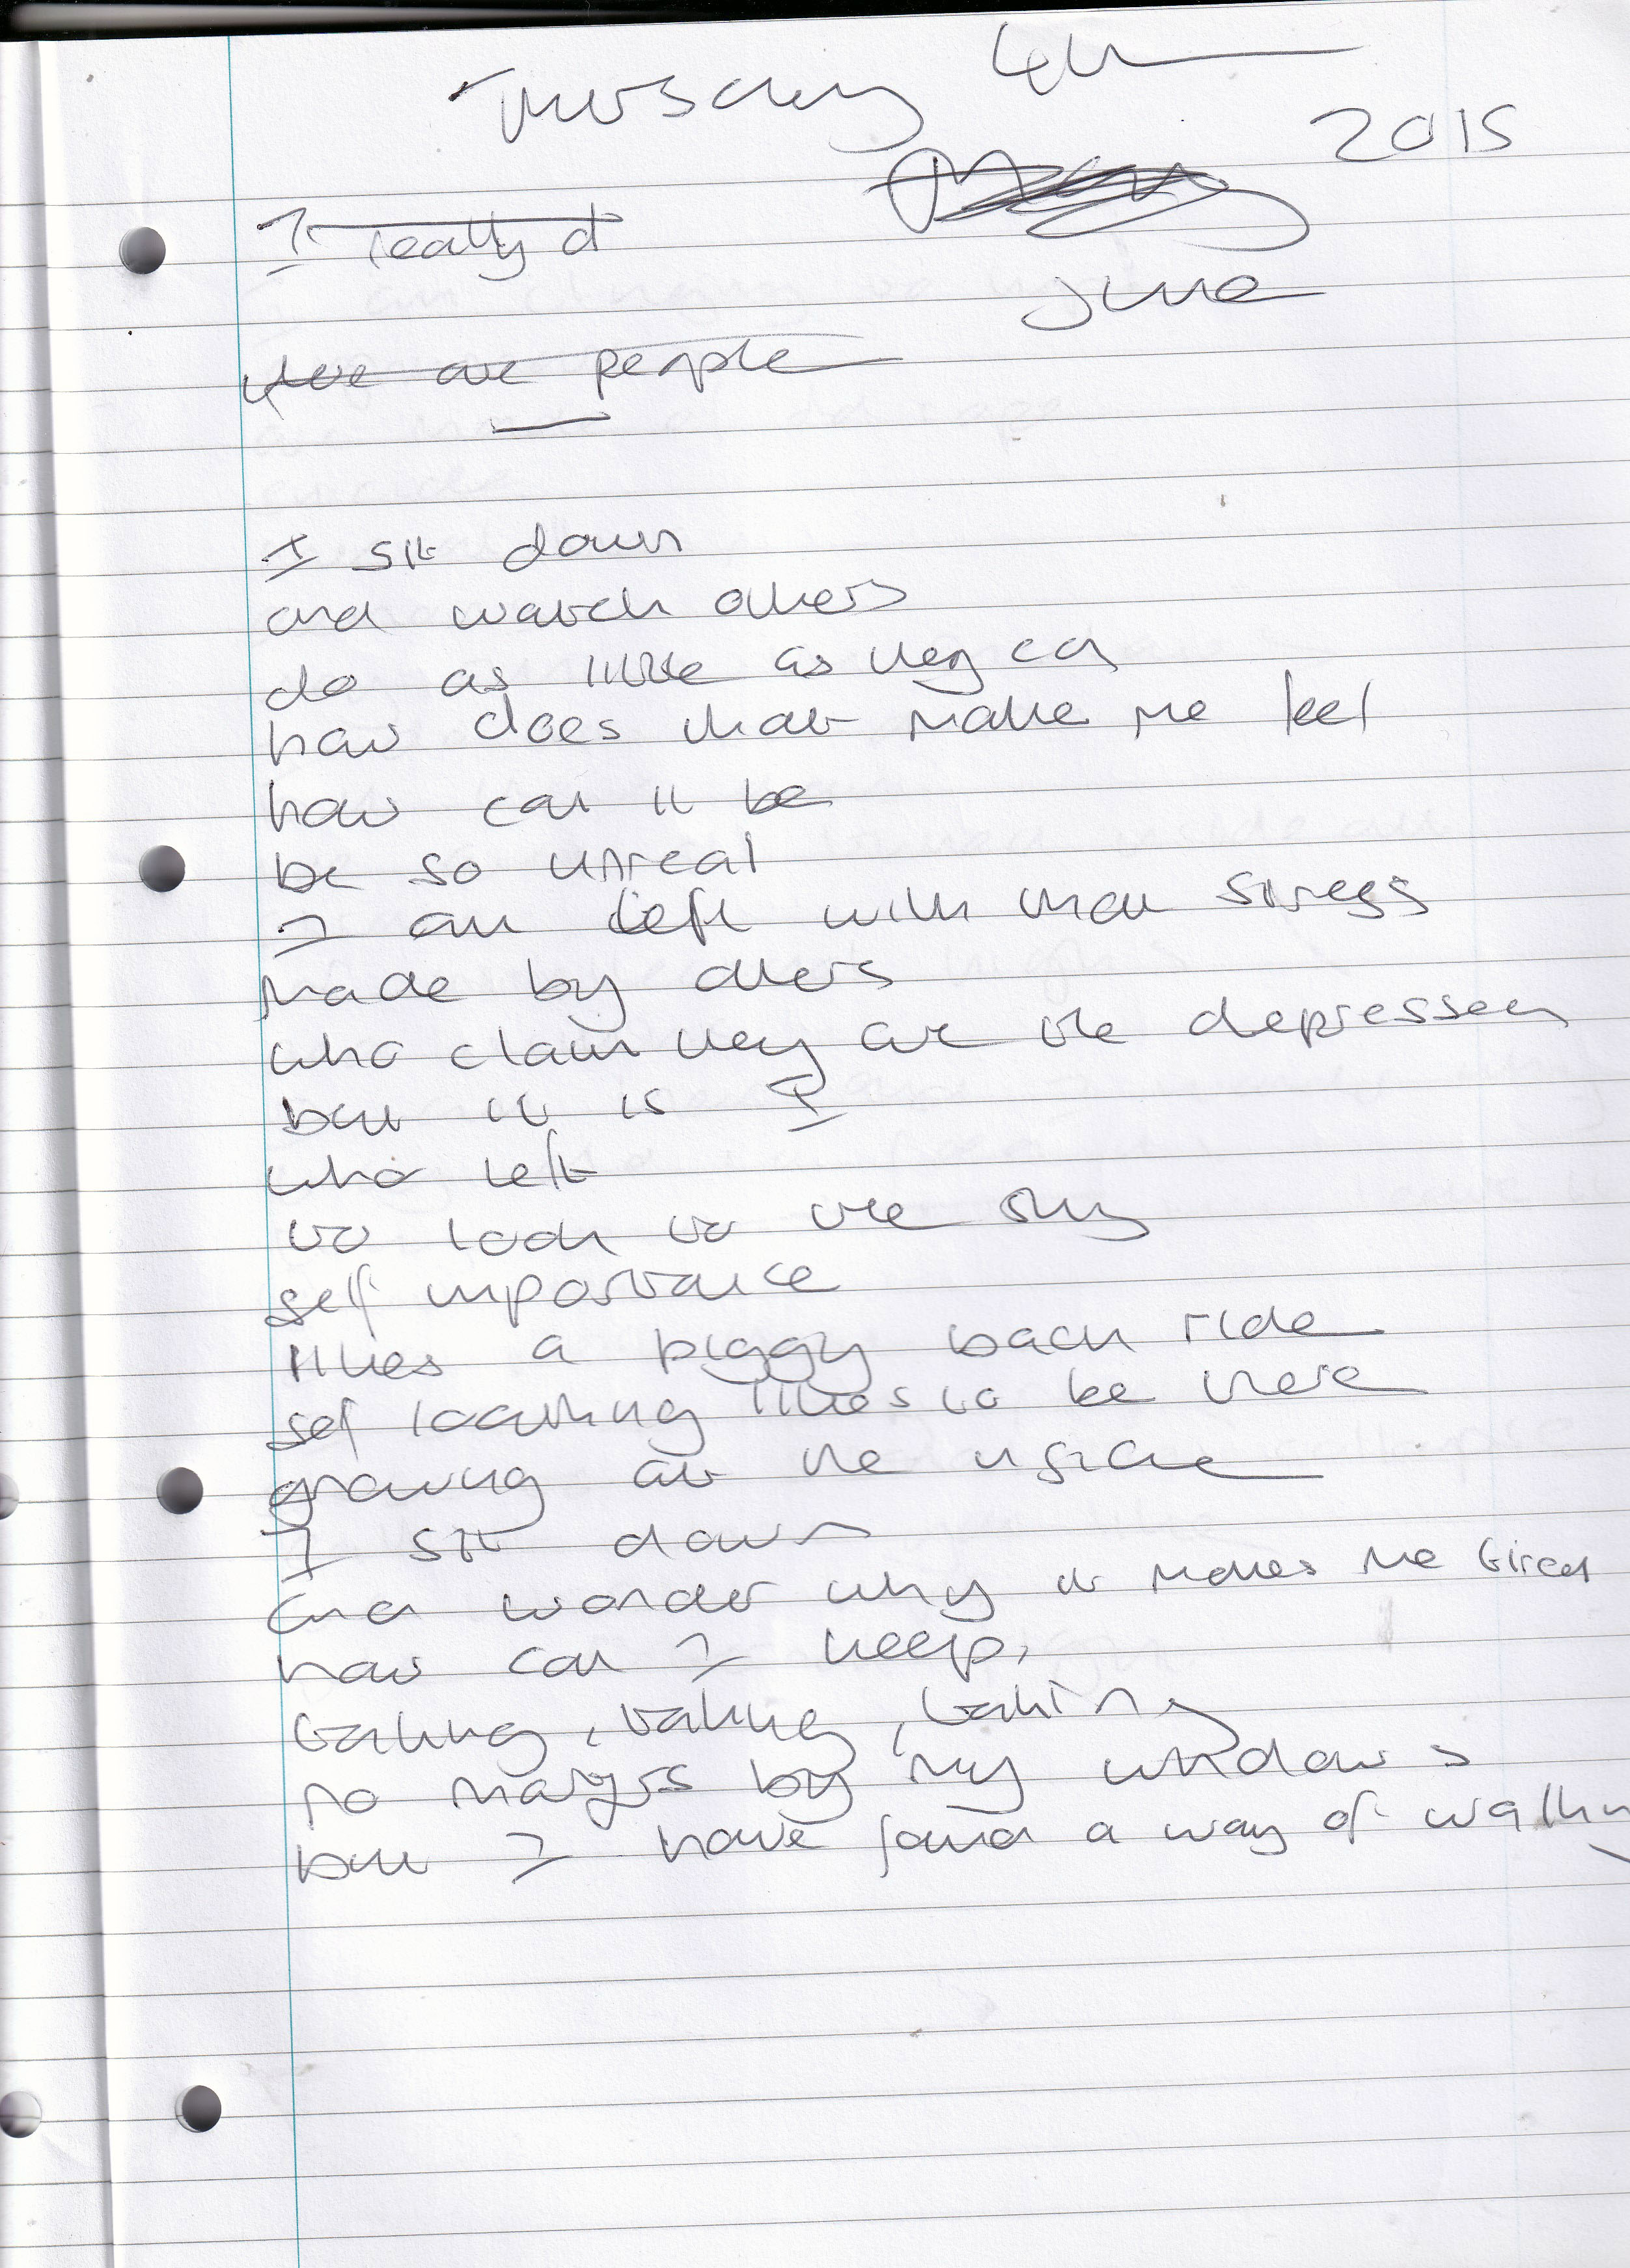 Thursday 4th
2015
I really d
June
there are people
I sit down
and watch others
do as little as they can
how does that make me feel
how can it be
be so unreal
I am left with that stress
made by others
who claim they are the depressed
but it is I
who left
to look to the sky
self importance
likes a piggy back ride
self loathing likes to be there
growing at the
I sit down
and wonder why it makes me tired
how can I keep,
taking, taking, taking
no by my windows
but I have found a way of walking